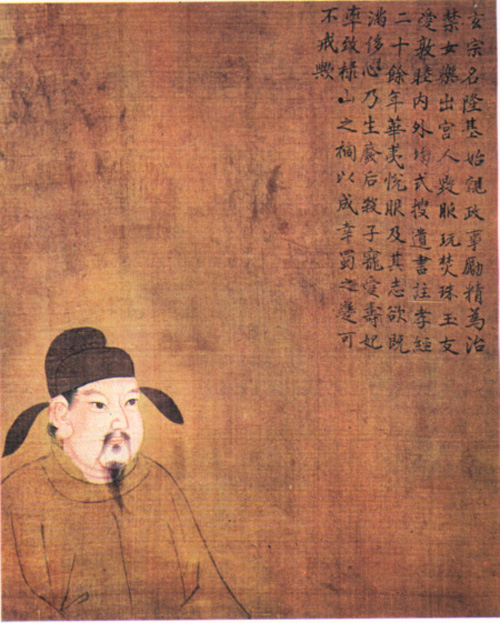 玄宗名隆基始政事勵精為治
禁女樂出宮人毀服玩焚珠玉友
愛敦睦內外均式搜遺書註孝經
二十餘年華夷悅服及其志欲既
滿侈心乃生廢后殺子寵愛壽妃
率致祿山之禍以成幸蜀之可
不戒歟